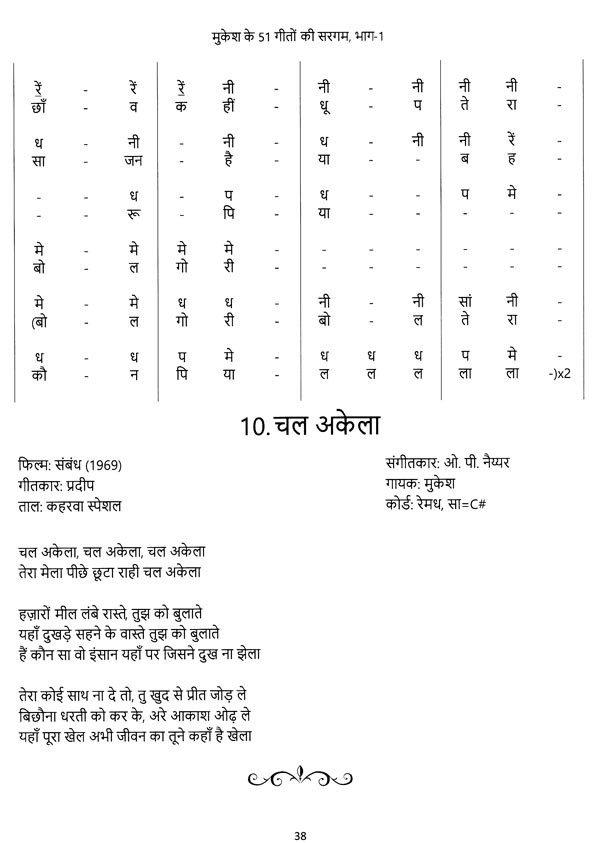 मुकेश के 51 गीतों की सरगम, भाग-1
रें - रें रें नी - नी - नी नी नी -
छाँ - व क हीं - धू - प ते रा -
ध - नी - नी - ध - नी नी रें -
सा - जन - है - या - - ब ह -
- - ध - प - ध - - प मे -
- - रू - पि - या - - - - -
मे - मे मे मे - - - - - - -
बो - ल गो री - - - - - - -
मे - मे ध ध - नी - नी सां नी -
(बो - ल गो री - बो - ल ते रा -
ध - ध प मे - ध ध ध प मे -
कौ - न पि या - ल ल ल ला ला -)x2
10.चल अकेला
फिल्म: संबंध (1969) संगीतकार: ओ. पी. नैय्यर
गीतकार: प्रदीप गायक: मुकेश
ताल: कहरवा स्पेशल कोर्ड: रेमध, सा=C#
चल अकेला, चल अकेला, चल अकेला
तेरा मेला पीछे छूटा राही चल अकेला
हज़ारों मील लंबे रास्ते, तुझ को बुलाते
यहाँ दुखड़े सहने के वास्ते तुझ को बुलाते
हैं कौन सा वो इंसान यहाँ पर जिसने दुख ना झेला
तेरा कोई साथ ना दे तो, तु खुद से प्रीत जोड़ ले
बिछौना धरती को कर के, अरे आकाश ओढ़ ले
यहाँ पूरा खेल अभी जीवन का तूने कहाँ है खेला
38